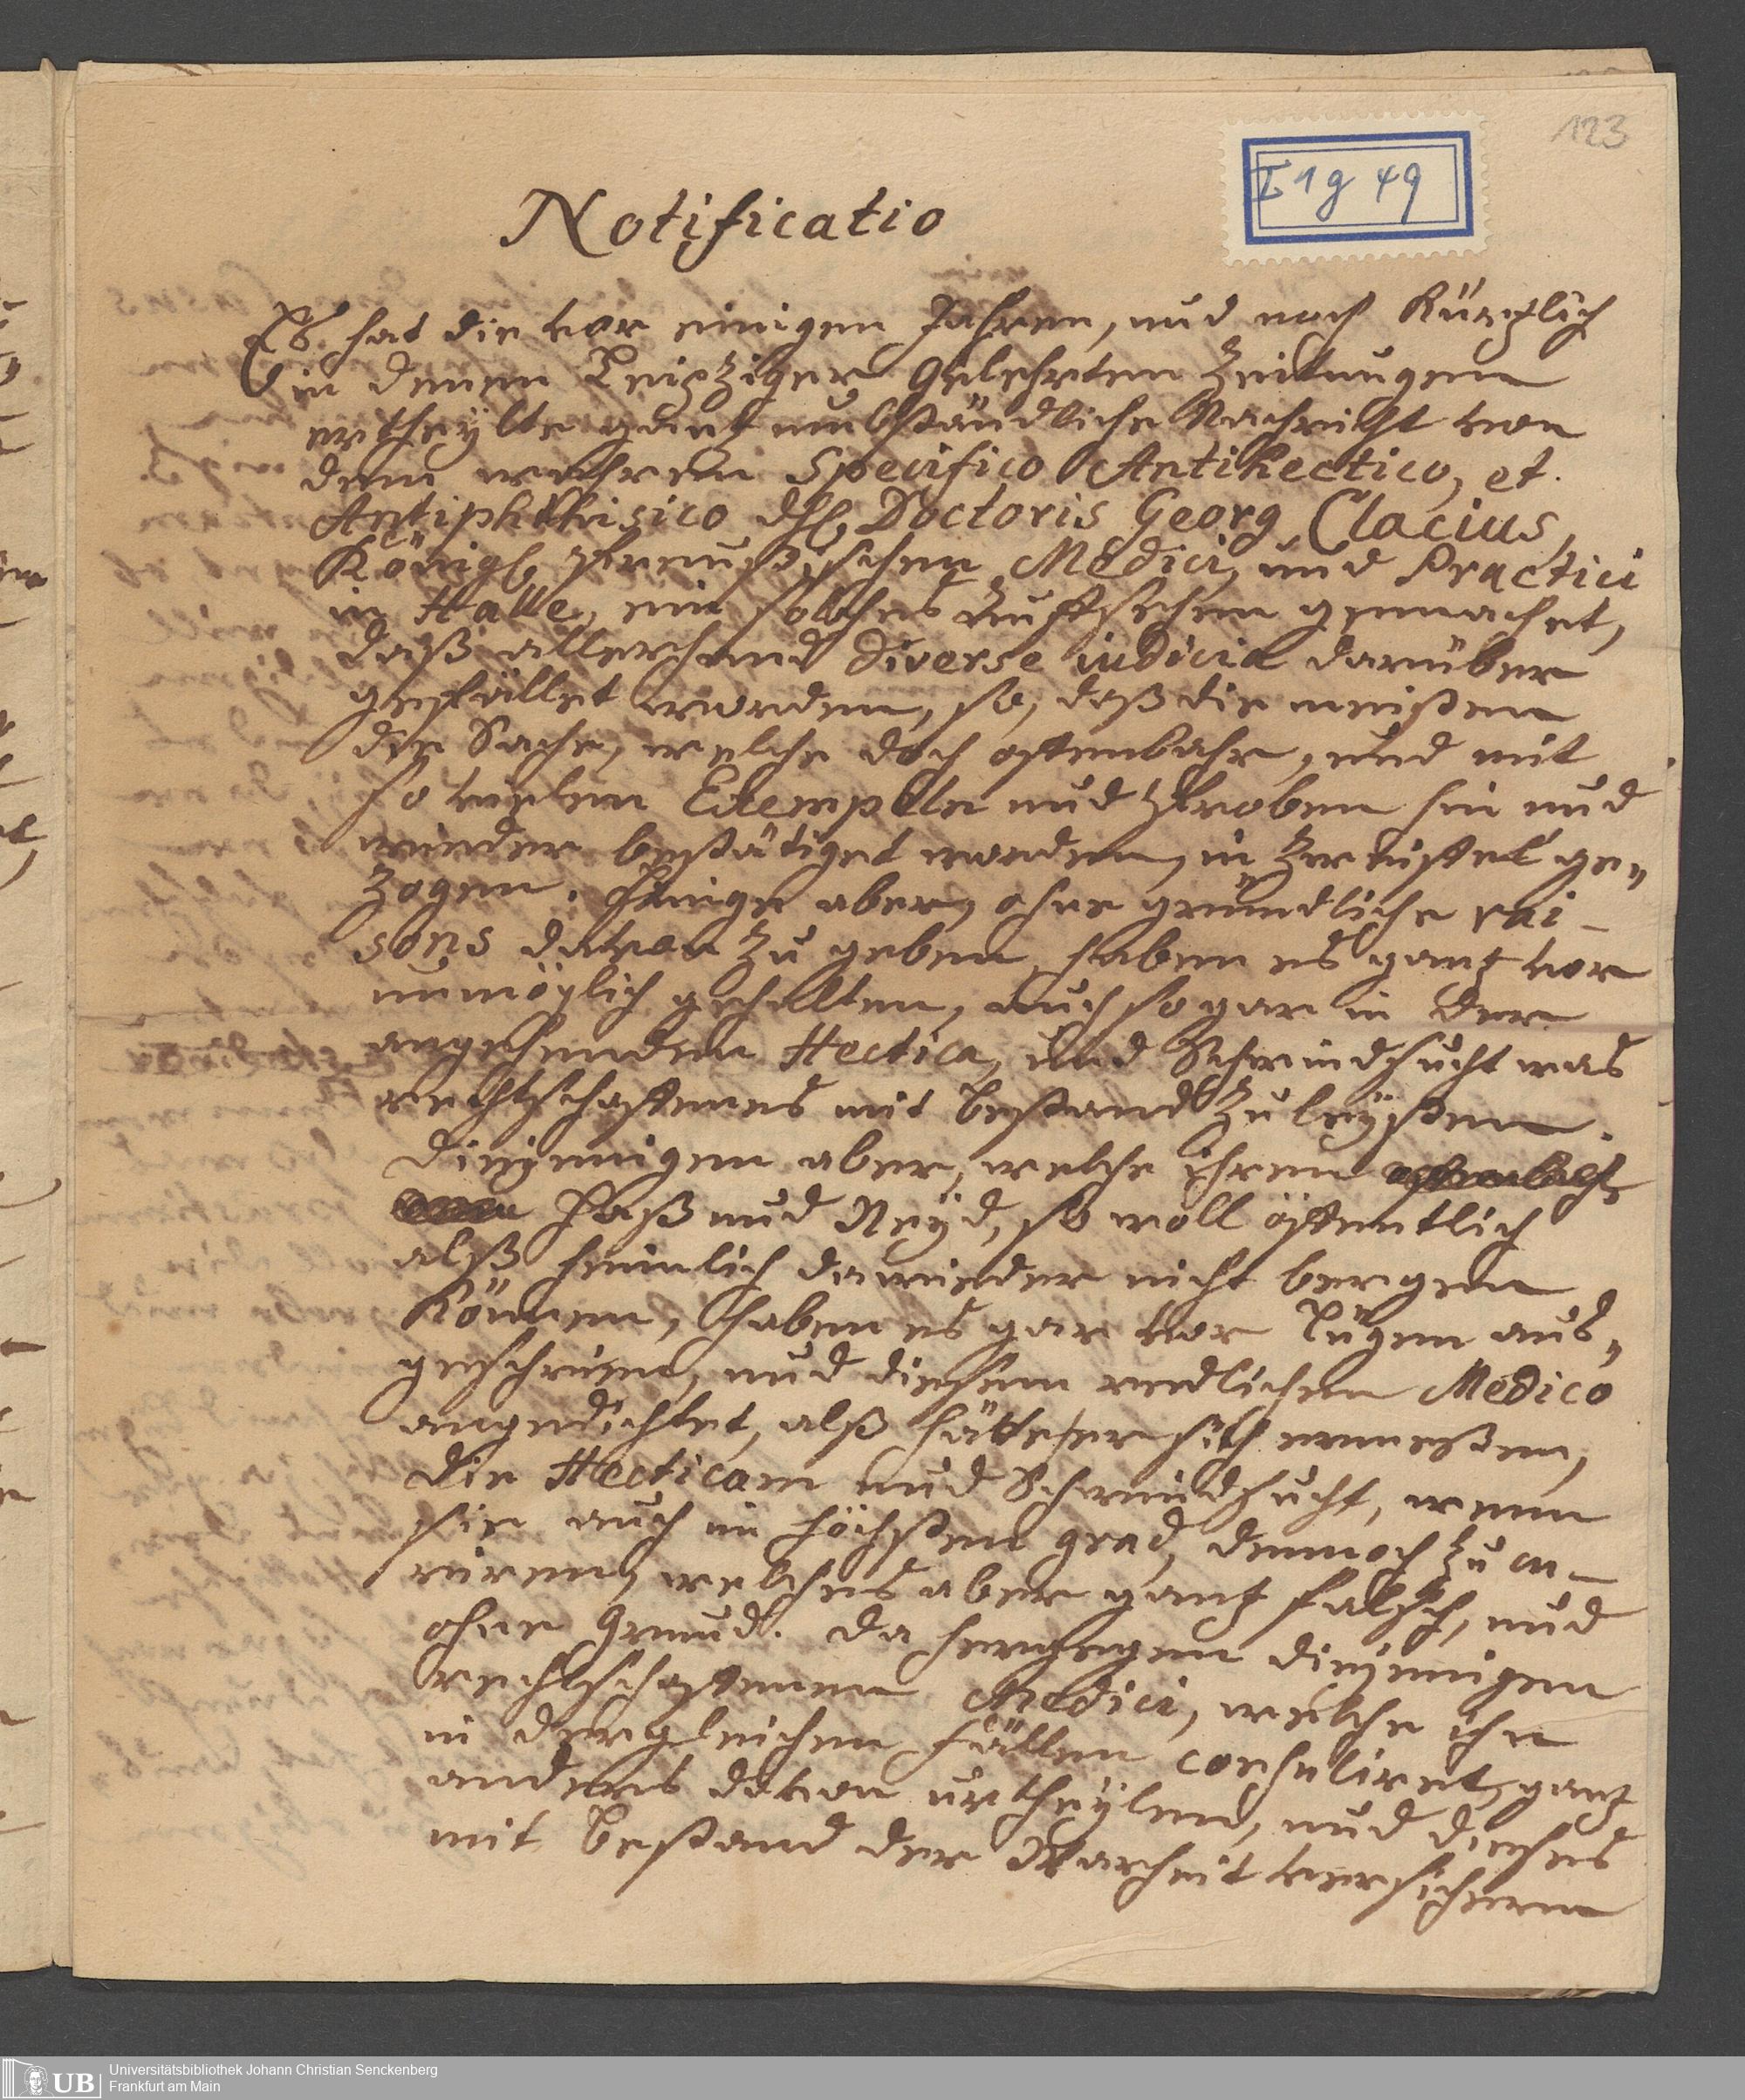 123
I 1 g 49
Notificatio
Es hat die vor einigen Jahren, und noch kürtzlich
in denen Leipziger Gelehrten Zeitungen
ertheÿlte gantz umbständliche Nachricht von
dem wahren Specifico Antihectico, et
Antiphthisico Doctoris Georg Clacius,
Königl. Preußischen Medici, und Practici
in Halle, ein solches Auffsehen gemachet,
daß allerhand diverse iudicia darüber
gefället worden, so, daß die meisten
die Sache, welche doch offenbahr, und mit
so vielen Exempeln und Proben hin und
wieder bestätiget worden, in Zweiffel ge„
zogen. Einige aber, ohne gründliche rai-
sons davon zu geben, haben es gantz vor
unmöglich gehalten, auch so gar in der
angehenden Hectica, und Schwindsucht was
rechtschaffenes mit Bestand zu leÿsten.
Diejenigen aber, welche ihren
Haß und Neÿd, so woll öffentlich
alß heimlich dawieder nicht bergen
können, haben es gar vor Lügen aus„
geschrieen, und diesem redlichen Medico
angedichtet, alß hätte er sich vermeßen,
die Hecticam und Schwindsucht, wenn
sie auch im höchsten grad, dennoch zu cu-
riren, welches aber gantz falsch, und
ohne Grund. Da hergegen diejenigen
rechtschaffenen Medici, welche ihn
in dergleichen Fällen consuliret, gantz
anders davon urtheÿlen, und dieses
mit Bestand der Warheit versichern
UB
Universitätsbibliothek Johann Christian Senckenberg
Frankfurt am Main